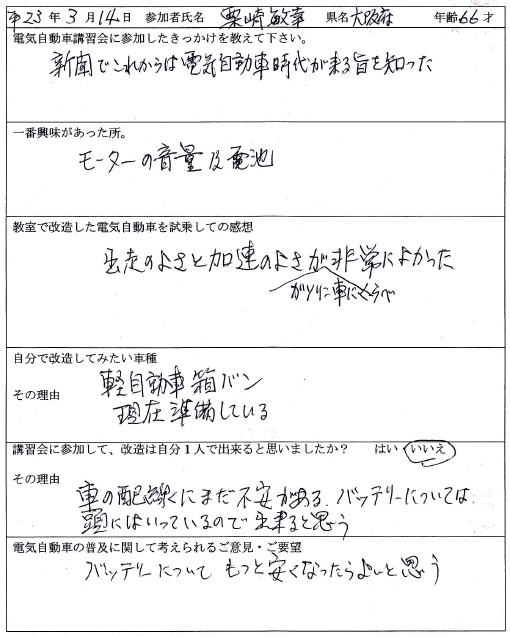 平23年3月14日 参加者氏名 栗崎敏幸 県名大阪府 年齢66才
電気自動車講習会に参加したきっかけを教えて下さい。
新聞でこれからは電気自動車時代が来る旨を知った
一番興味があった所。
モーターの音量及電池
教室で改造した電気自動車を試乗しての感想
出走のよさと加速のよさが非常によかった
ガソリン車にくらべ
自分で改造してみたい車種
軽自動車箱バン
その理由
現在準備している
講習会に参加して、改造は自分1人で出来ると思いましたか? はい・いいえ
その理由
車の配線にまだ不安がある、バッテリーについては
頭にはいっているので出来ると思う
電気自動車の普及に関して考えられるご意見・ご要望
バッテリーについてもっと安くなったらよいと思う